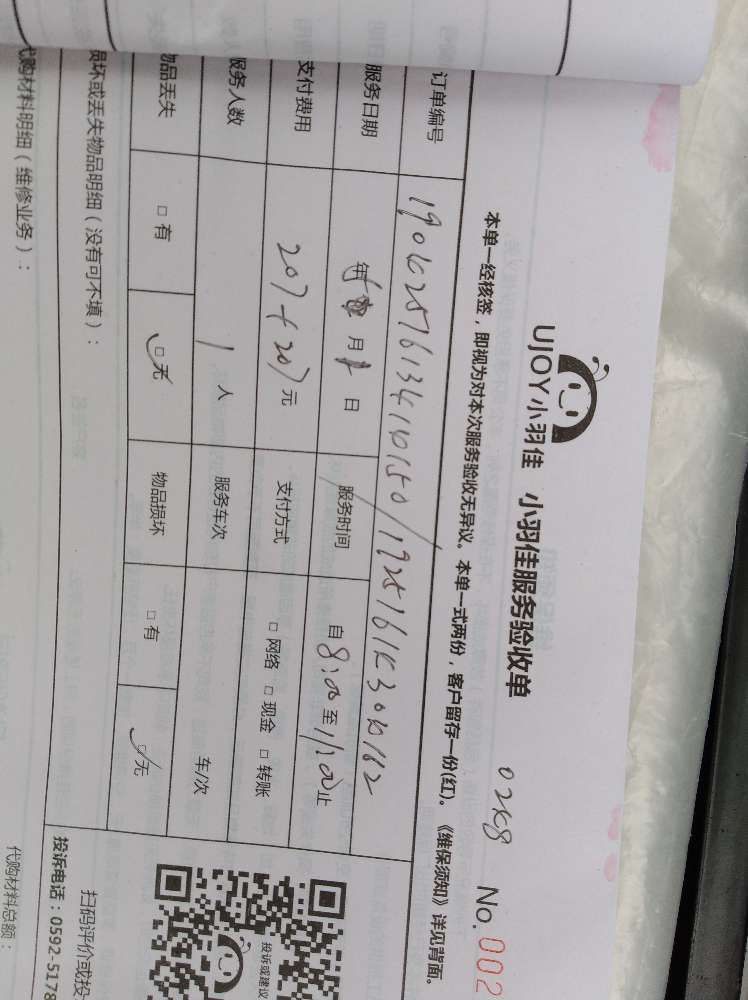 UJOY小羽佳 小羽佳服务验收单 No.002
本单一经核签，即视为对本次服务验收无异议。本单一式两份，客户留存一份(红)。《维保须知》详见背面。
订单编号
服务日期 年 月 日 服务时间 自8:00至11:00止
支付费用 207+207元 支付方式 □网络 □现金 □转账
服务人数 1人 服务车次 车/次
物品丢失 □有 □无 物品损坏 □有 □无
损坏或丢失物品明细（没有可不填）：
代购材料明细（维修业务）：
代购材料总额：
投诉或建议
扫码评价或投
投诉电话：0592-5178